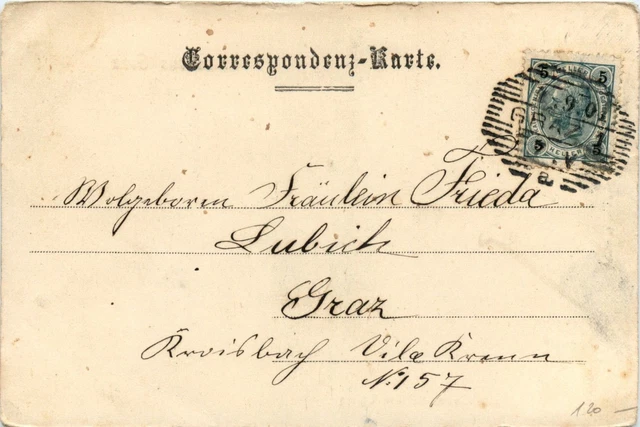 Correspondenz-Karte.
5 5
5 5
HELLER
Wolgeboren Fräulein Frieda
Lubich
Graz
Kroisbach Vila Krenn
No 157
1.20 —